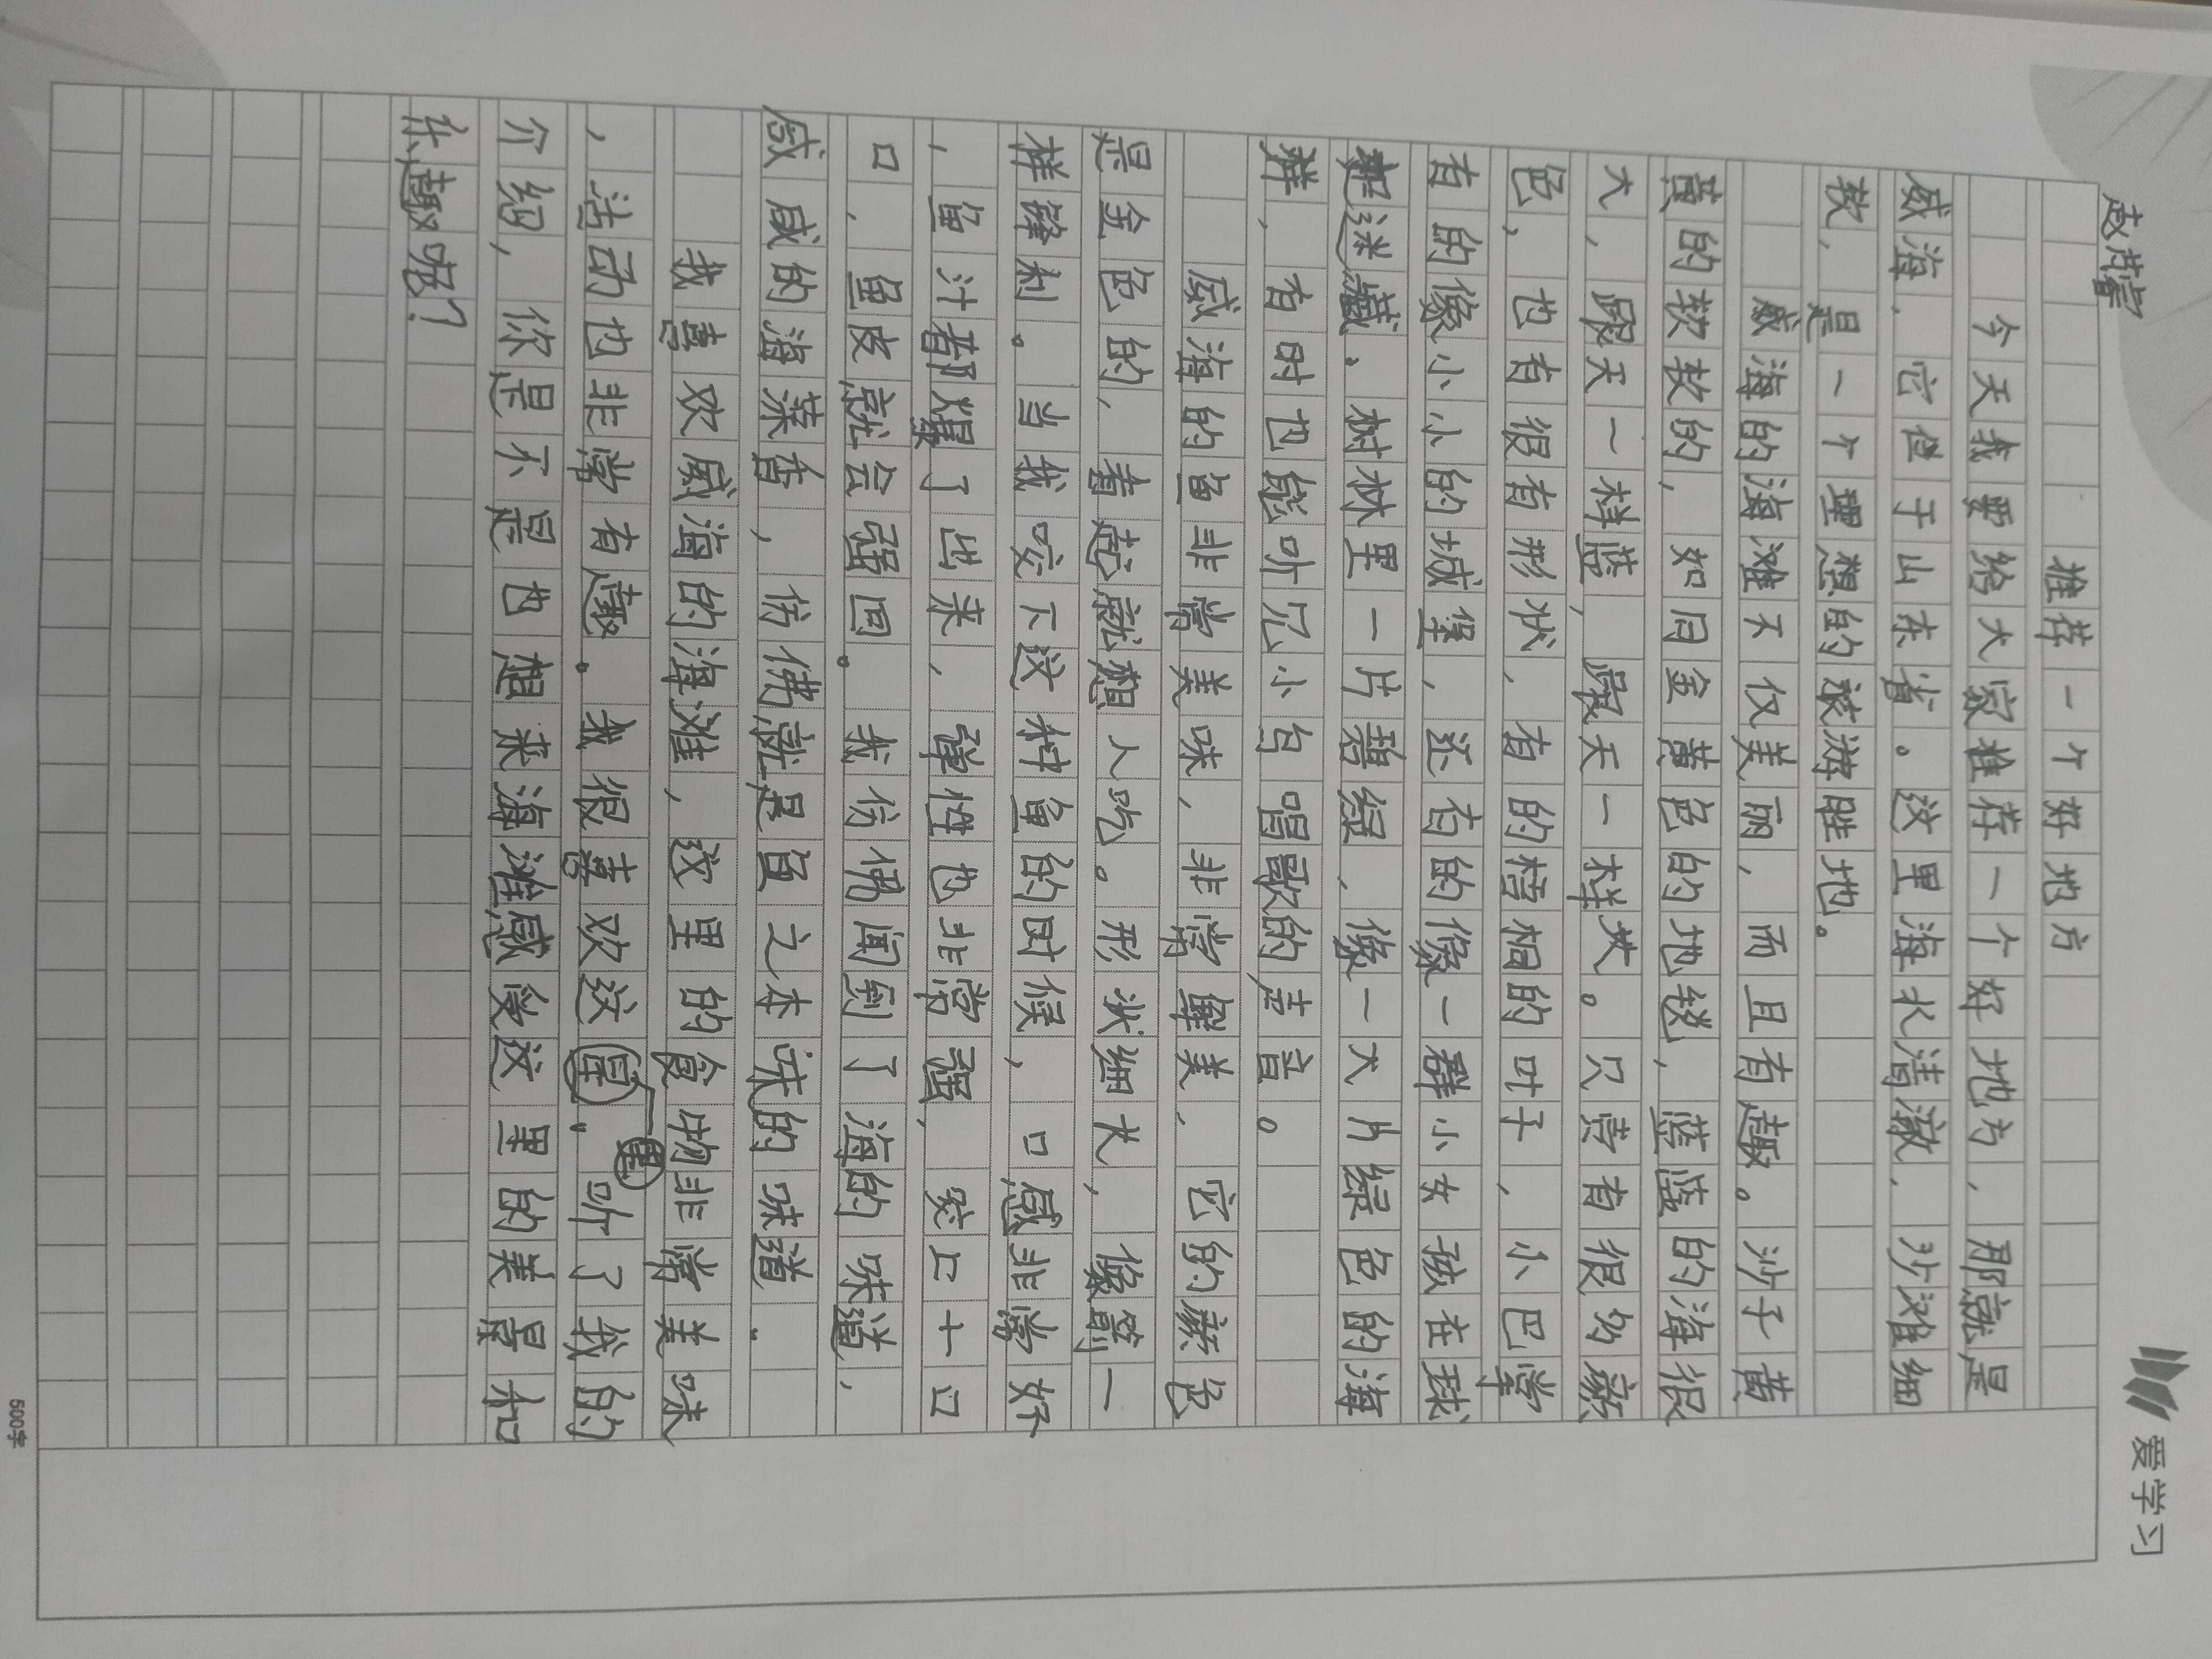 爱学习
赵馨
推荐一个好地方
今天我要给大家推荐一个好地方，那就是
威海，它位于山东省。这里海水清澈，沙滩细
软，是一个理想的旅游胜地。
威海的海滩不仅美丽，而且有趣。沙子黄
黄的软软的，如同金黄色的地毯，蓝蓝的海很
大，跟天一样蓝，跟天一样大。只贡有很多颜
色，也有很有形状，有的梧桐的叶子，小巴掌
有的像小小的城堡，还有的像一群小女孩在球
起迷藏。树林里一片碧绿，像一大片绿色的海
洋，有时也能听见小鸟唱歌的声音。
威海的鱼非常美味，非常鲜美，它的颜色
是金色的，看起就想人吃。形状细长，像箭一
样锋利。当我咬下这种鱼的时候，口感非常好
，鱼汁都爆了出来，弹性也非常强，咬上一口
口，鱼皮就会弹回。我仿佛闻到了海的味道，
咸咸的海菜香，仿佛就是鱼之本味的味道。
我喜欢威海的海滩，这里的食物非常美味
，活动也非常有趣。我很喜欢这里。听了我的
介绍，你是不是也想来海滩感受这里的美景和
乐趣呢？
500字